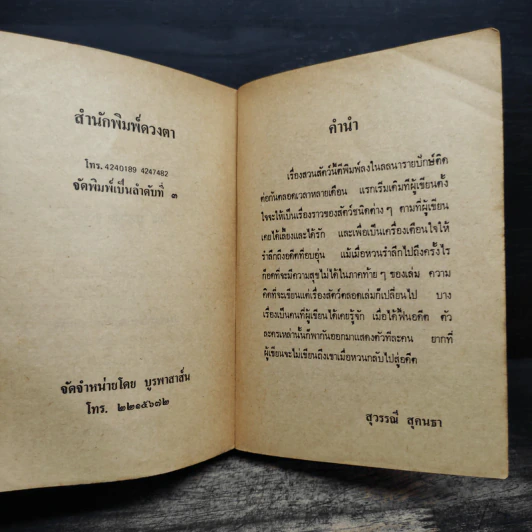 สำนักพิมพ์ดวงตา
โทร. 4240189 4247482
จัดพิมพ์เป็นลำดับที่ ๓
จัดจำหน่ายโดย บูรพาสาส์น
โทร. ๒๒๑๕๖๘๒
คำนำ
เรื่องสวนสัตว์นี้ตีพิมพ์ลงในลลนารายปักษ์ติด
ต่อกันตลอดเวลาหลายเดือน แรกเริ่มเดิมทีผู้เขียนตั้ง
ใจจะให้เป็นเรื่องราวของสัตว์ชนิดต่าง ๆ ตามที่ผู้เขียน
เคยได้เลี้ยงและได้รัก และเพื่อเป็นเครื่องเตือนใจให้
รำลึกถึงอดีตที่อบอุ่น แม้เมื่อหวนรำลึกไปถึงครั้งไร
ก็อดที่จะมีความสุขไม่ได้ในภาคท้าย ๆ ของเล่ม ความ
คิดที่จะเขียนแต่เรื่องสัตว์ตลอดเล่มก็เปลี่ยนไป บาง
เรื่องเป็นคนที่ผู้เขียนได้เคยรู้จัก เมื่อได้ฟื้นอดีต ตัว
ละครเหล่านั้นก็พากันออกมาแสดงตัวทีละคน ยากที่
ผู้เขียนจะไม่เขียนถึงเขาเมื่อหวนกลับไปสู่อดีต
สุวรรณี สุคนธา